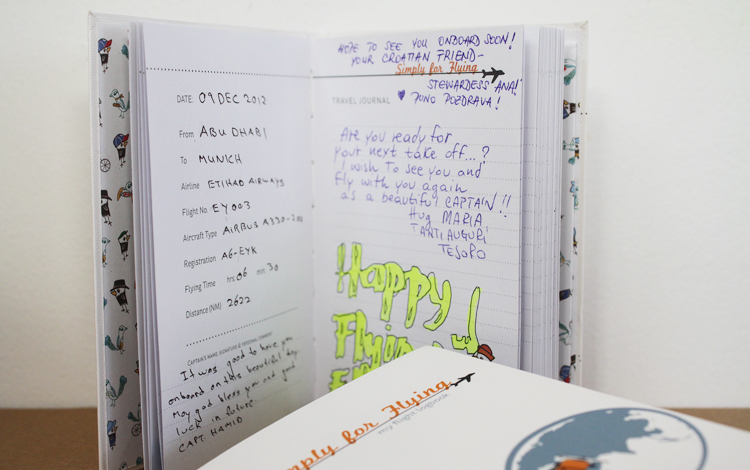 DATE: 09 DEC 2012
From ABU DHABI
To MUNICH
Airline ETIHAD AIRWAYS
Flight No. EY003
Aircraft Type AIRBUS A330-200
Registration A6-EYK
Flying Time hrs: 06 min: 30
Distance (NM) 2622
CAPTAIN'S NAME, SIGNATURE & PERSONAL COMMENT
It was good to have you
onboard on this beautiful day.
May god bless you and good
luck in future.
CAPT. HAMID
HOPE TO SEE YOU ONBOARD SOON!
YOUR CROATIAN FRIEND-
Simply for Flying
STEWARDESS ANA!
TRAVEL JOURNAL ♥ PUNO POZDRAVA!
Are you ready for
your next take off...?
I wish To see you and
Fly with you again
as a beautiful CAPTAIN!!
Hug MARIA
TANTI AUGURI
TESORO
Happy
Flying
Simply for Flying
my flight logbook